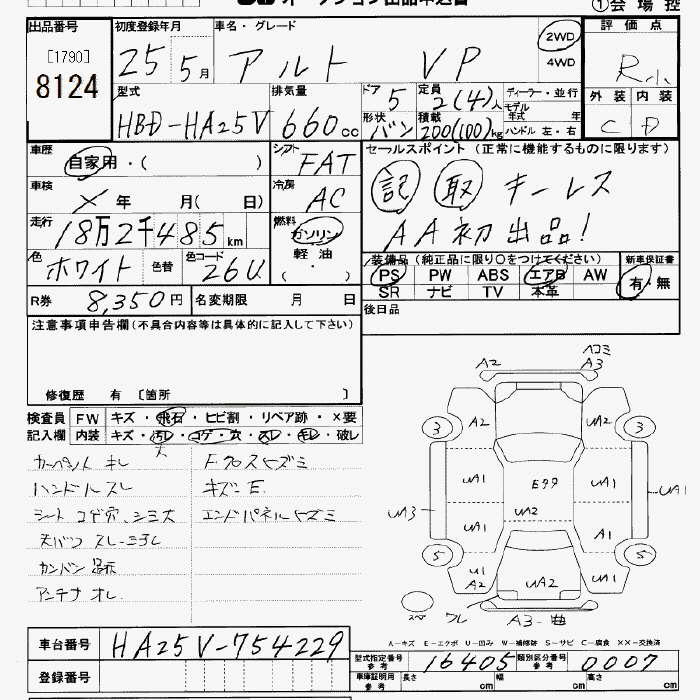 オークション出品申込書 ①会場控
出品番号 初度登録年月 車名・グレード 評価点
[1790] 8124 25年 5月 アルト VP 2WD 4WD R小
型式 排気量 ドア 5 定員 2(4)人 ディーラー・並行 外装 内装
HBD-HA25V 660cc 形状 バン 積載 200(100)kg モデル年式 年 ハンドル 左・右 C D
車歴 自家用・( ) シフト FAT セールスポイント (正常に機能するものに限ります)
車検 × 年 月( 日) 冷房 AC 記 取 キーレス
走行 18万2千485km 燃料 ガソリン 軽油 ( ・ ) AA初出品!
色 ホワイト 色替 色コード 26U 装備品 (純正品に限り○をつけてください) 新車保証書
PS PW ABS エアB AW 有・無
SR ナビ TV 本革
R券 8,350円 名変期限 月 日 後日品
注意事項申告欄(不具合内容等は具体的に記入して下さい)
修復歴 有 [箇所 ]
検査員 FW キズ・飛石・ヒビ割・リペア跡・×要
記入欄 内装 キズ・汚レ・コゲ・穴・スレ・キレ・破レ
大
カーペット キレ F.クロスキズミ
ハンドル スレ キズ=E
シート コゲ穴、シミ大 エンドパネルキズミ
アンテナ オレ
A2 A3
A2 UA2
3 3
UA1 E99 UA1 UA1
UA3 UA2
UA1 A1
5 5
U1 A2 UA2 UA1
ワレ A3-曲
A-キズ E-エクボ U-凹み W-補修跡 S-サビ C-腐食 XX-交換済
車台番号 HA25V-754229 型式指定番号 参考 16405 類別区分番号 参考 0007
登録番号 車庫証明用 参考 長さ cm 幅 cm 高さ cm